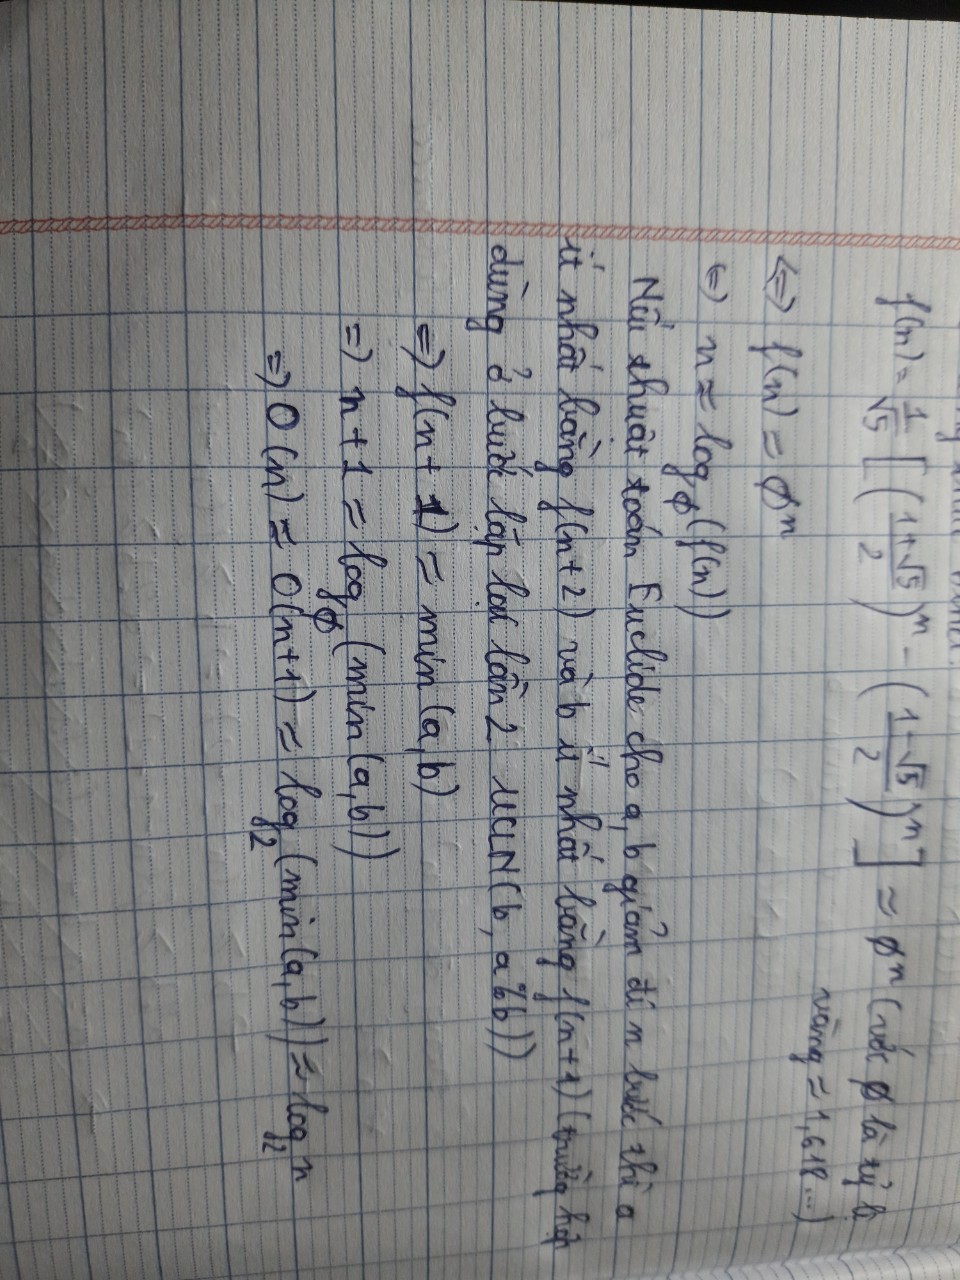 f(n) = 1/√5 [ ((1+√5)/2)^n - ((1-√5)/2)^n ] ≈ ø^n (với ø là tỷ lệ
vàng ≈ 1,618...)
⇔ f(n) = ø^n
⇔ n ≈ log_ø(f(n))
Nếu thuật toán Euclide cho a, b giảm đi n bước thì a
ít nhất bằng f(n+2) và b ít nhất bằng f(n+1) (trường hợp
dừng ở bước lặp lại lần 2 UCLN(b, a%b))
⇒ f(n+1) ≈ min(a,b)
⇒ n+1 ≈ log_ø(min(a,b))
⇒ O(n) ≈ O(n+1) ≈ log_2(min(a,b)) ≈ log_2 n